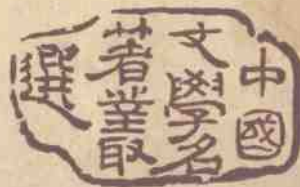 中國
文學名
著叢叢
選